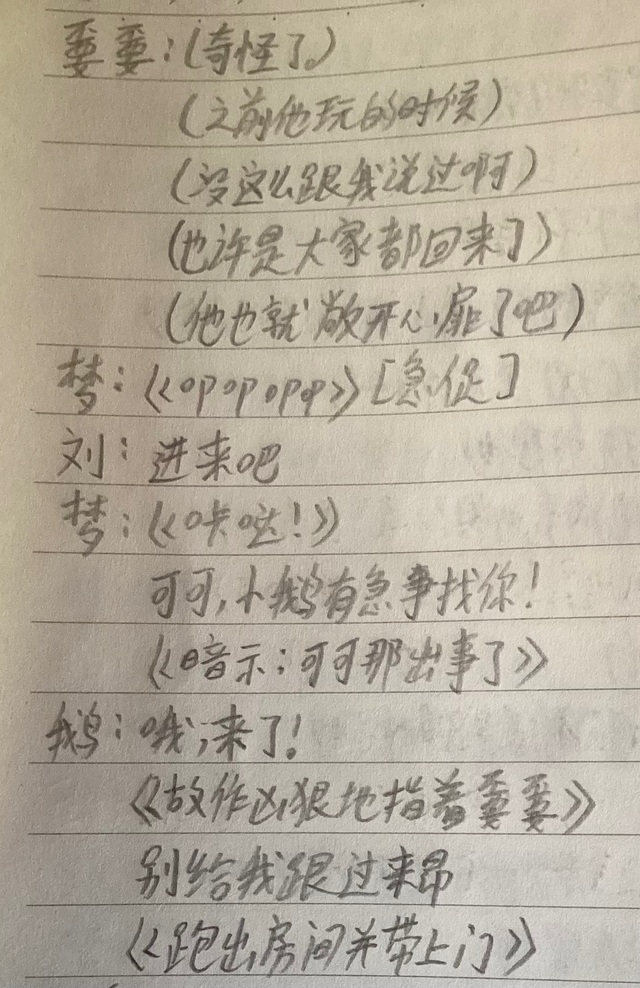 嫑嫑：（奇怪了。）
（之前他玩的时候）
（没这么跟我说过啊）
（也许是大家都回来了）
（他也就敞开心扉了吧）
梦：《《opopopop》》［急促］
刘：进来吧
梦：《《咔哒！》》
可可，小鹅有急事找你！
《《暗示：可可那出事了》》
鹅：哦，来了！
《《故作凶狠地指着嫑嫑》》
别给我跟过来昂
《《跑出房间并带上门》》